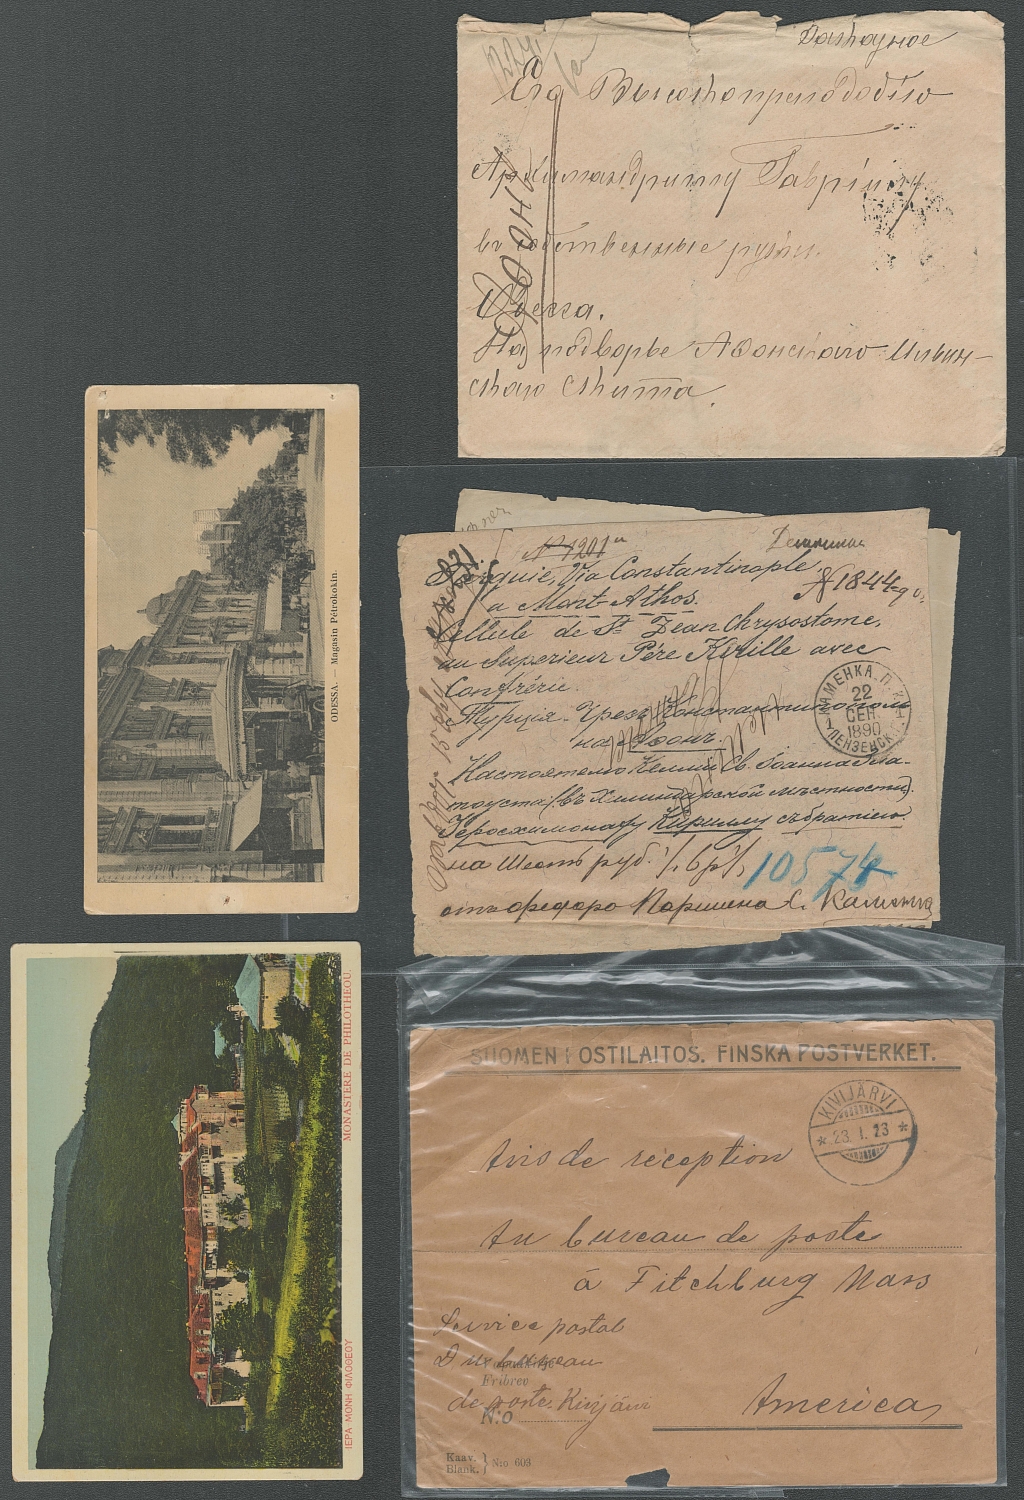 Его Высокопреподобію
Архимандриту Гавріилу
въ собственныя руки.
Одесса.
На подворье Афонскаго Ильин-
скаго скита.
ODESSA. — Magasin Pétrokokin.
№ 1201
Turquie, Via Constantinople,
a Mont-Athos.
Cellule de St Jean Chrysostome,
au Superieur Père Kirille avec
Confrérie.
№ 1844
Турція. Чрезъ Константинополь
на Аѳонъ.
Настоятелю Келліи Св. Іоанна Зла-
тоуста (въ Хиландарской мѣстности)
Іеросхимонаху Кириллу съ братіею.
на Шесть руб.
1057
отъ Федора Паршина С. Каменка
КАМЕНКА. П. К.
22
СЕН.
1890
ПЕНЗЕНСК.
MONASTÈRE DE PHILOTHEOU
ΙΕΡΑ ΜΟΝΗ ΦΙΛΟΘΕΟΥ
SUOMEN POSTILAITOS. FINSKA POSTVERKET.
KIVIJÄRVI
23. I. 13
Avis de réception
Au bureau de poste
à Fitchburg Mass
America
Service postal
Du bureau
Fribrev
de poste Kivijärvi
N:o
Kaav.
Blank. } N:o 603